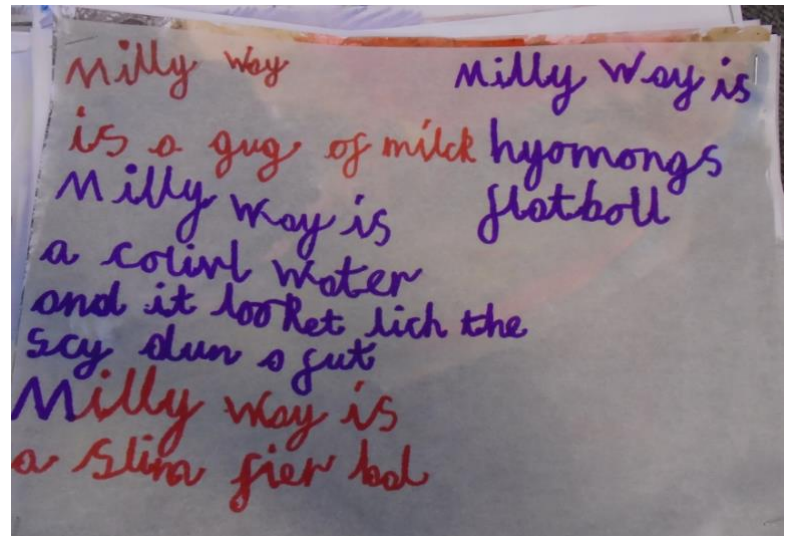 Milly Way
is a gug of milck
Milly Way is
a colirl water
and it looket lich the
scy dun a fut
Milly Way is
a slim fier bal
Milly Way is
hyomongs
flatboll